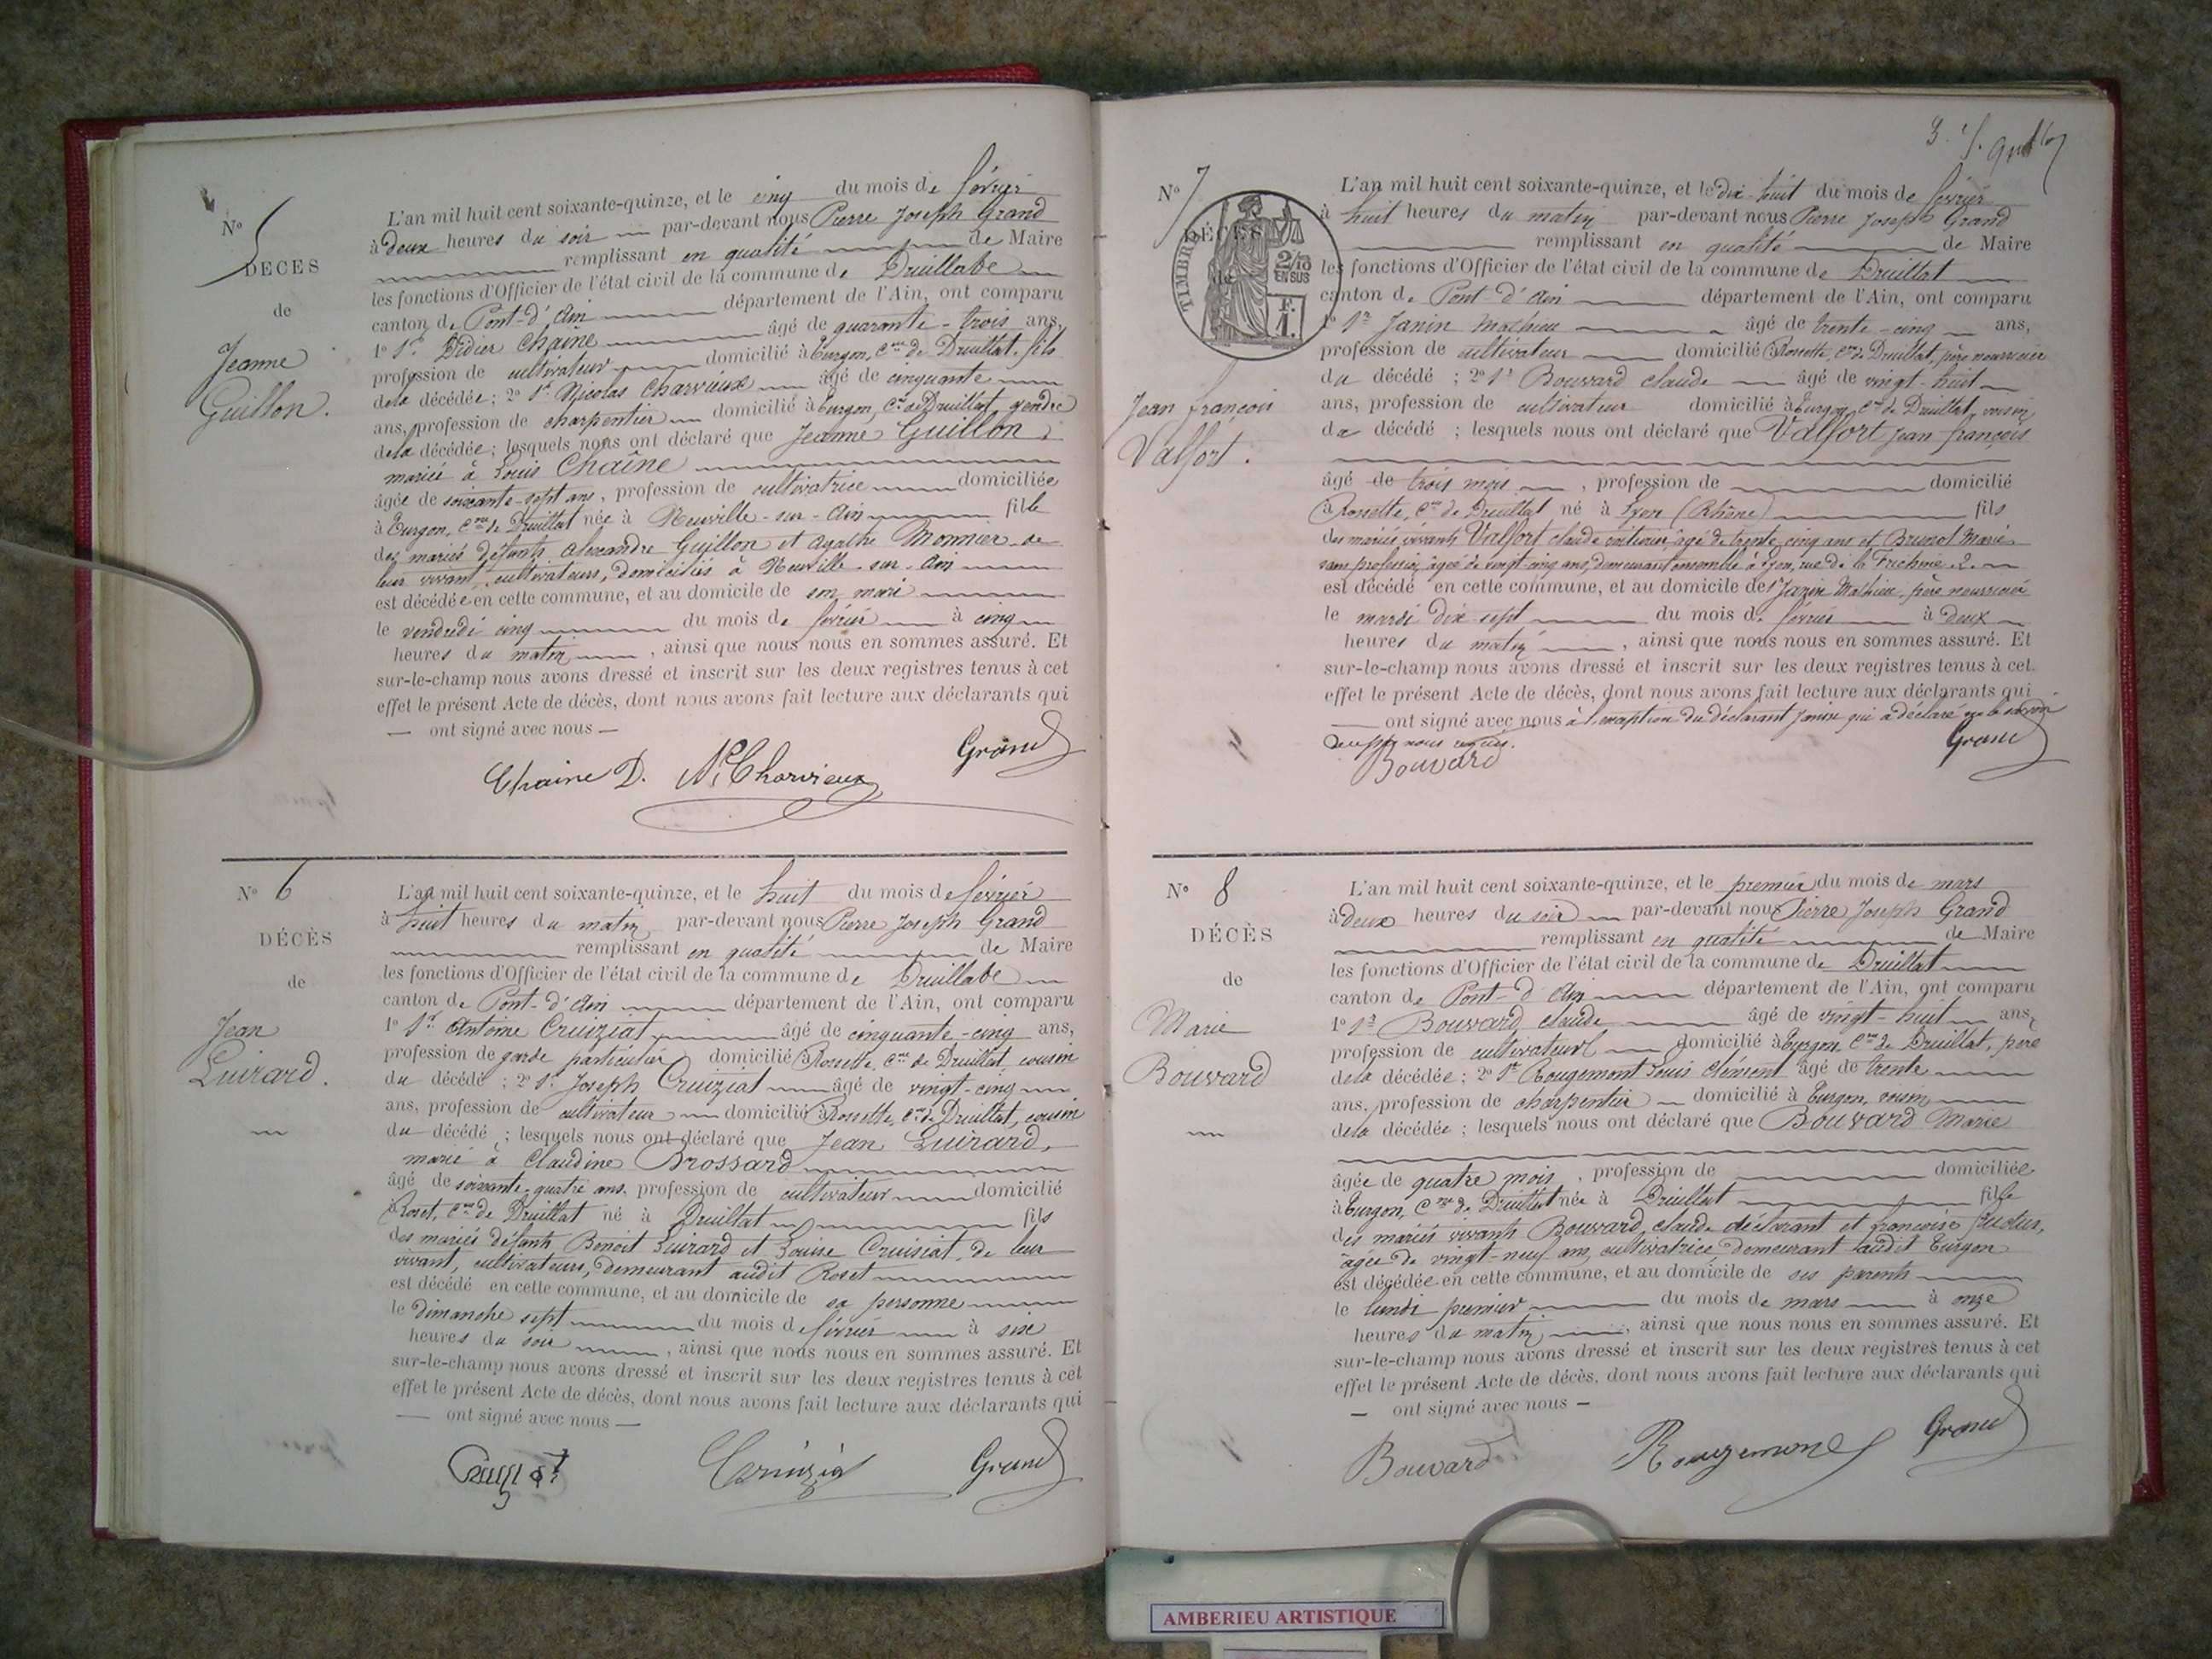 N° 5
DÉCÈS
de
Jeanne
Guillon.
L'an mil huit cent soixante-quinze, et le cinq du mois de février
à deux heures du soir par-devant nous Pierre Joseph Grand
remplissant en qualité de Maire
les fonctions d'Officier de l'état civil de la commune de Druillat
canton de Pont-d'Ain département de l'Ain, ont comparu
1° Sr. Didier Chaîne âgé de quarante-trois ans,
profession de cultivateur domicilié à Turgon, Cne de Druillat, fils
de la décédée; 2° Sr. Nicolas Charvieux âgé de cinquante
ans, profession de charpentier domicilié à Turgon, Cne de Druillat, gendre
de la décédée; lesquels nous ont déclaré que Jeanne Guillon,
mariée à Louis Chaîne
âgée de soixante-sept ans, profession de cultivatrice domiciliée
à Turgon, Cne de Druillat née à Neuville-sur-Ain fille
des mariés défunts Alexandre Guillon et Agathe Monnier de
leur vivant cultivateurs, domiciliés à Neuville-sur-Ain
est décédée en cette commune, et au domicile de son mari
le vendredi cinq du mois de février à cinq
heures du matin, ainsi que nous nous en sommes assuré. Et
sur-le-champ nous avons dressé et inscrit sur les deux registres tenus à cet
effet le présent Acte de décès, dont nous avons fait lecture aux déclarants qui
— ont signé avec nous —
Chaine D. N. Charvieux Grand
N° 6
DÉCÈS
de
Jean
Luirard.
L'an mil huit cent soixante-quinze, et le huit du mois de février
à huit heures du matin par-devant nous Pierre Joseph Grand
remplissant en qualité de Maire
les fonctions d'Officier de l'état civil de la commune de Druillat
canton de Pont-d'Ain département de l'Ain, ont comparu
1° Sr. Antoine Cruiziat âgé de cinquante-cinq ans,
profession de garde particulier domicilié à Rossette, Cne de Druillat, cousin
du décédé; 2° Sr. Joseph Cruiziat âgé de vingt-cinq
ans, profession de cultivateur domicilié à Rossette, Cne de Druillat, cousin
du décédé; lesquels nous ont déclaré que Jean Luirard,
marié à Claudine Brossard
âgé de soixante-quatre ans, profession de cultivateur domicilié
à Roset, Cne de Druillat né à Druillat fils
des mariés défunts Benoit Luirard et Louise Cruisiat, de leur
vivant, cultivateurs, demeurant audit Roset
est décédé en cette commune, et au domicile de sa personne
le dimanche sept du mois de février à six
heures du soir, ainsi que nous nous en sommes assuré. Et
sur-le-champ nous avons dressé et inscrit sur les deux registres tenus à cet
effet le présent Acte de décès, dont nous avons fait lecture aux déclarants qui
— ont signé avec nous —
Cruiziat Grand
N° 7
DÉCÈS
de
TIMBRE
2/10
EN SUS
F.
1.
Jean françois
Valfort.
L'an mil huit cent soixante-quinze, et le dix huit du mois de février
à huit heures du matin par-devant nous Pierre Joseph Grand
remplissant en qualité de Maire
les fonctions d'Officier de l'état civil de la commune de Druillat
canton de Pont-d'Ain département de l'Ain, ont comparu
1° Sr Janin Mathieu âgé de trente-cinq ans,
profession de cultivateur domicilié à Rossette, Cne de Druillat, père nourricier
du décédé; 2° Sr Bouvard Claude âgé de vingt-huit
ans, profession de cultivateur domicilié à Turgon, Cne de Druillat, voisin
du décédé; lesquels nous ont déclaré que Valfort Jean françois
âgé de trois mois, profession de domicilié
à Rossette, Cne de Druillat né à Lyon (Rhône) fils
des mariés vivants Valfort Claude voiturier, âgé de trente cinq ans et Brunot Marie
sans profession, âgée de vingt-cinq ans, demeurant ensemble à Lyon, rue de la 2.
est décédé en cette commune, et au domicile de Sr Janin Mathieu, père nourricier
le mardi dix-sept du mois de février à deux
heures du matin, ainsi que nous nous en sommes assuré. Et
sur-le-champ nous avons dressé et inscrit sur les deux registres tenus à cet
effet le présent Acte de décès, dont nous avons fait lecture aux déclarants qui
— ont signé avec nous à l'exception du déclarant Janin qui a déclaré ne le savoir
de ce par nous requis.
Bouvard Grand
N° 8
DÉCÈS
de
Marie
Bouvard
L'an mil huit cent soixante-quinze, et le premier du mois de mars
à deux heures du soir par-devant nous Pierre Joseph Grand
remplissant en qualité de Maire
les fonctions d'Officier de l'état civil de la commune de Druillat
canton de Pont-d'Ain département de l'Ain, ont comparu
1° Sr Bouvard Claude âgé de vingt-huit ans,
profession de cultivateur domicilié à Turgon, Cne de Druillat, père
de la décédée; 2° Sr Rougemont Louis Clément âgé de trente
ans, profession de charpentier domicilié à Turgon, voisin
de la décédée; lesquels nous ont déclaré que Bouvard Marie
âgée de quatre mois, profession de domiciliée
à Turgon, Cne de Druillat née à Druillat fille
des mariés vivants Bouvard, Claude déclarant et françoise
âgée de vingt-neuf ans, cultivatrice, demeurant audit Turgon
est décédée en cette commune, et au domicile de ses parents
le lundi premier du mois de mars à onze
heures du matin, ainsi que nous nous en sommes assuré. Et
sur-le-champ nous avons dressé et inscrit sur les deux registres tenus à cet
effet le présent Acte de décès, dont nous avons fait lecture aux déclarants qui
— ont signé avec nous —
Bouvard Rougemont Grand
AMBERIEU ARTISTIQUE